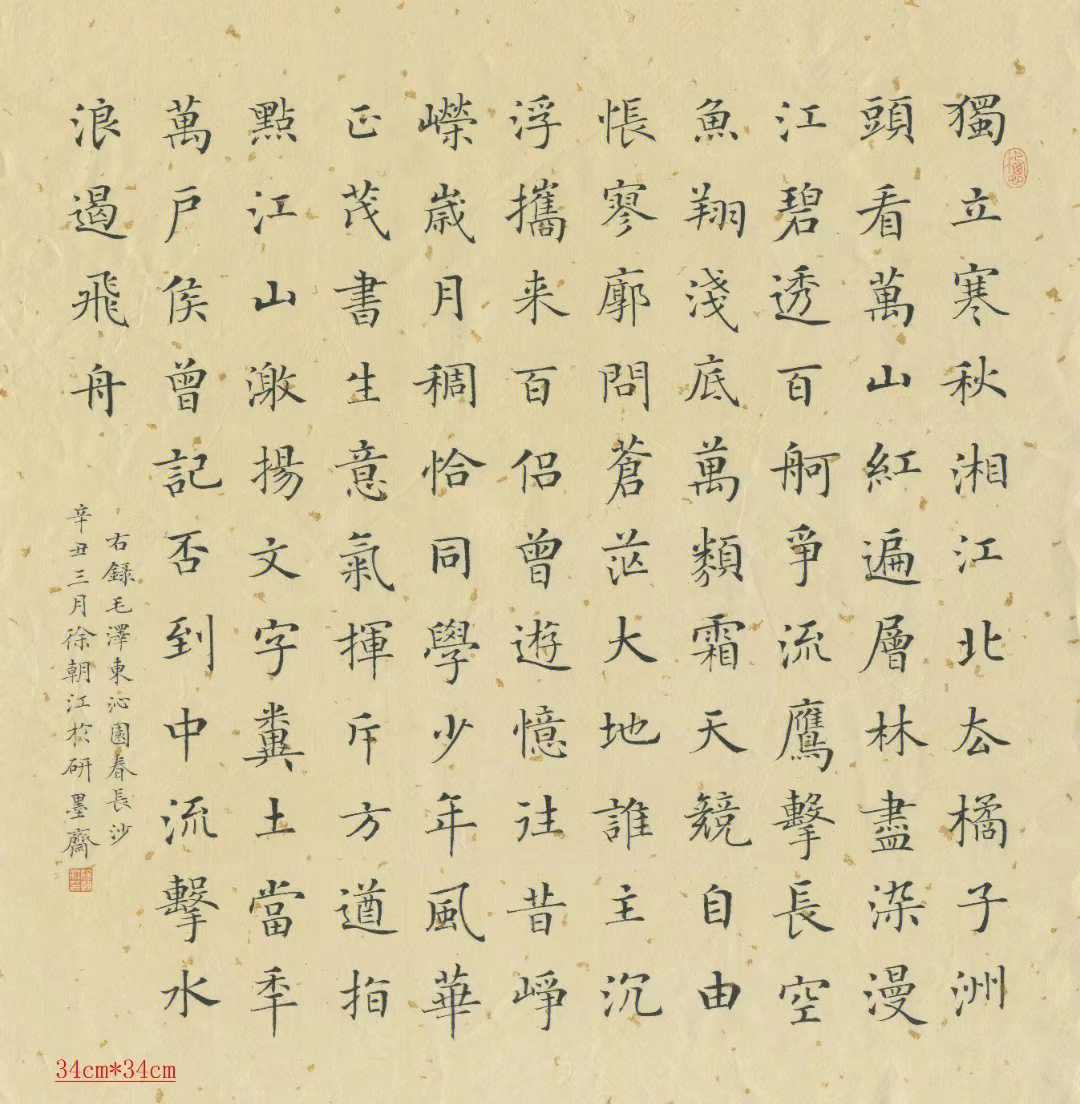 獨立寒秋湘江北去橘子洲
頭看萬山紅遍層林盡染漫
江碧透百舸爭流鷹擊長空
魚翔淺底萬類霜天競自由
悵寥廓問蒼茫大地誰主沉
浮攜来百侣曾遊憶往昔崢
嶸歲月稠恰同學少年風華
正茂書生意氣揮斥方遒指
點江山激揚文字糞土當年
萬戶侯曾記否到中流擊水
浪遏飛舟
右録毛澤東沁園春長沙
辛丑三月徐朝江於研墨齋
34cm*34cm